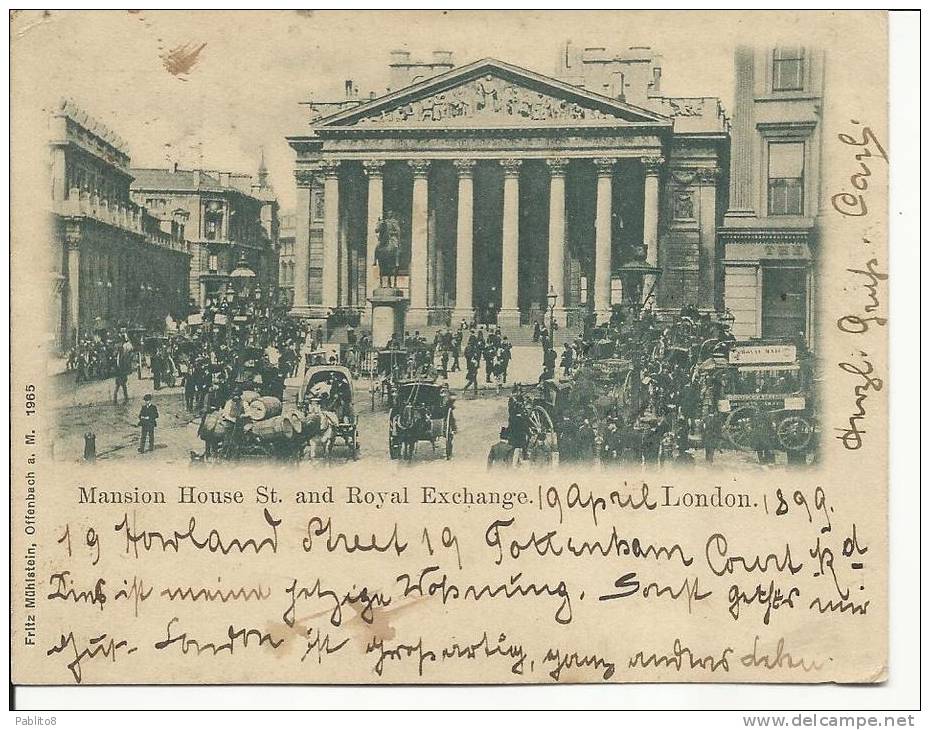 Mansion House St. and Royal Exchange. 19 April London. 1899.
19 Howland Street 19 Tottenham Court Rd
Dies ist meine jetzige Wohnung. Sonst geht's mir
gut. London ist großartig, ganz anders
Herzli Gruß. Carl.
Fritz Mühlstein, Offenbach a. M. 1965
ROYAL MAIL
Pablito8
www.delcampe.net